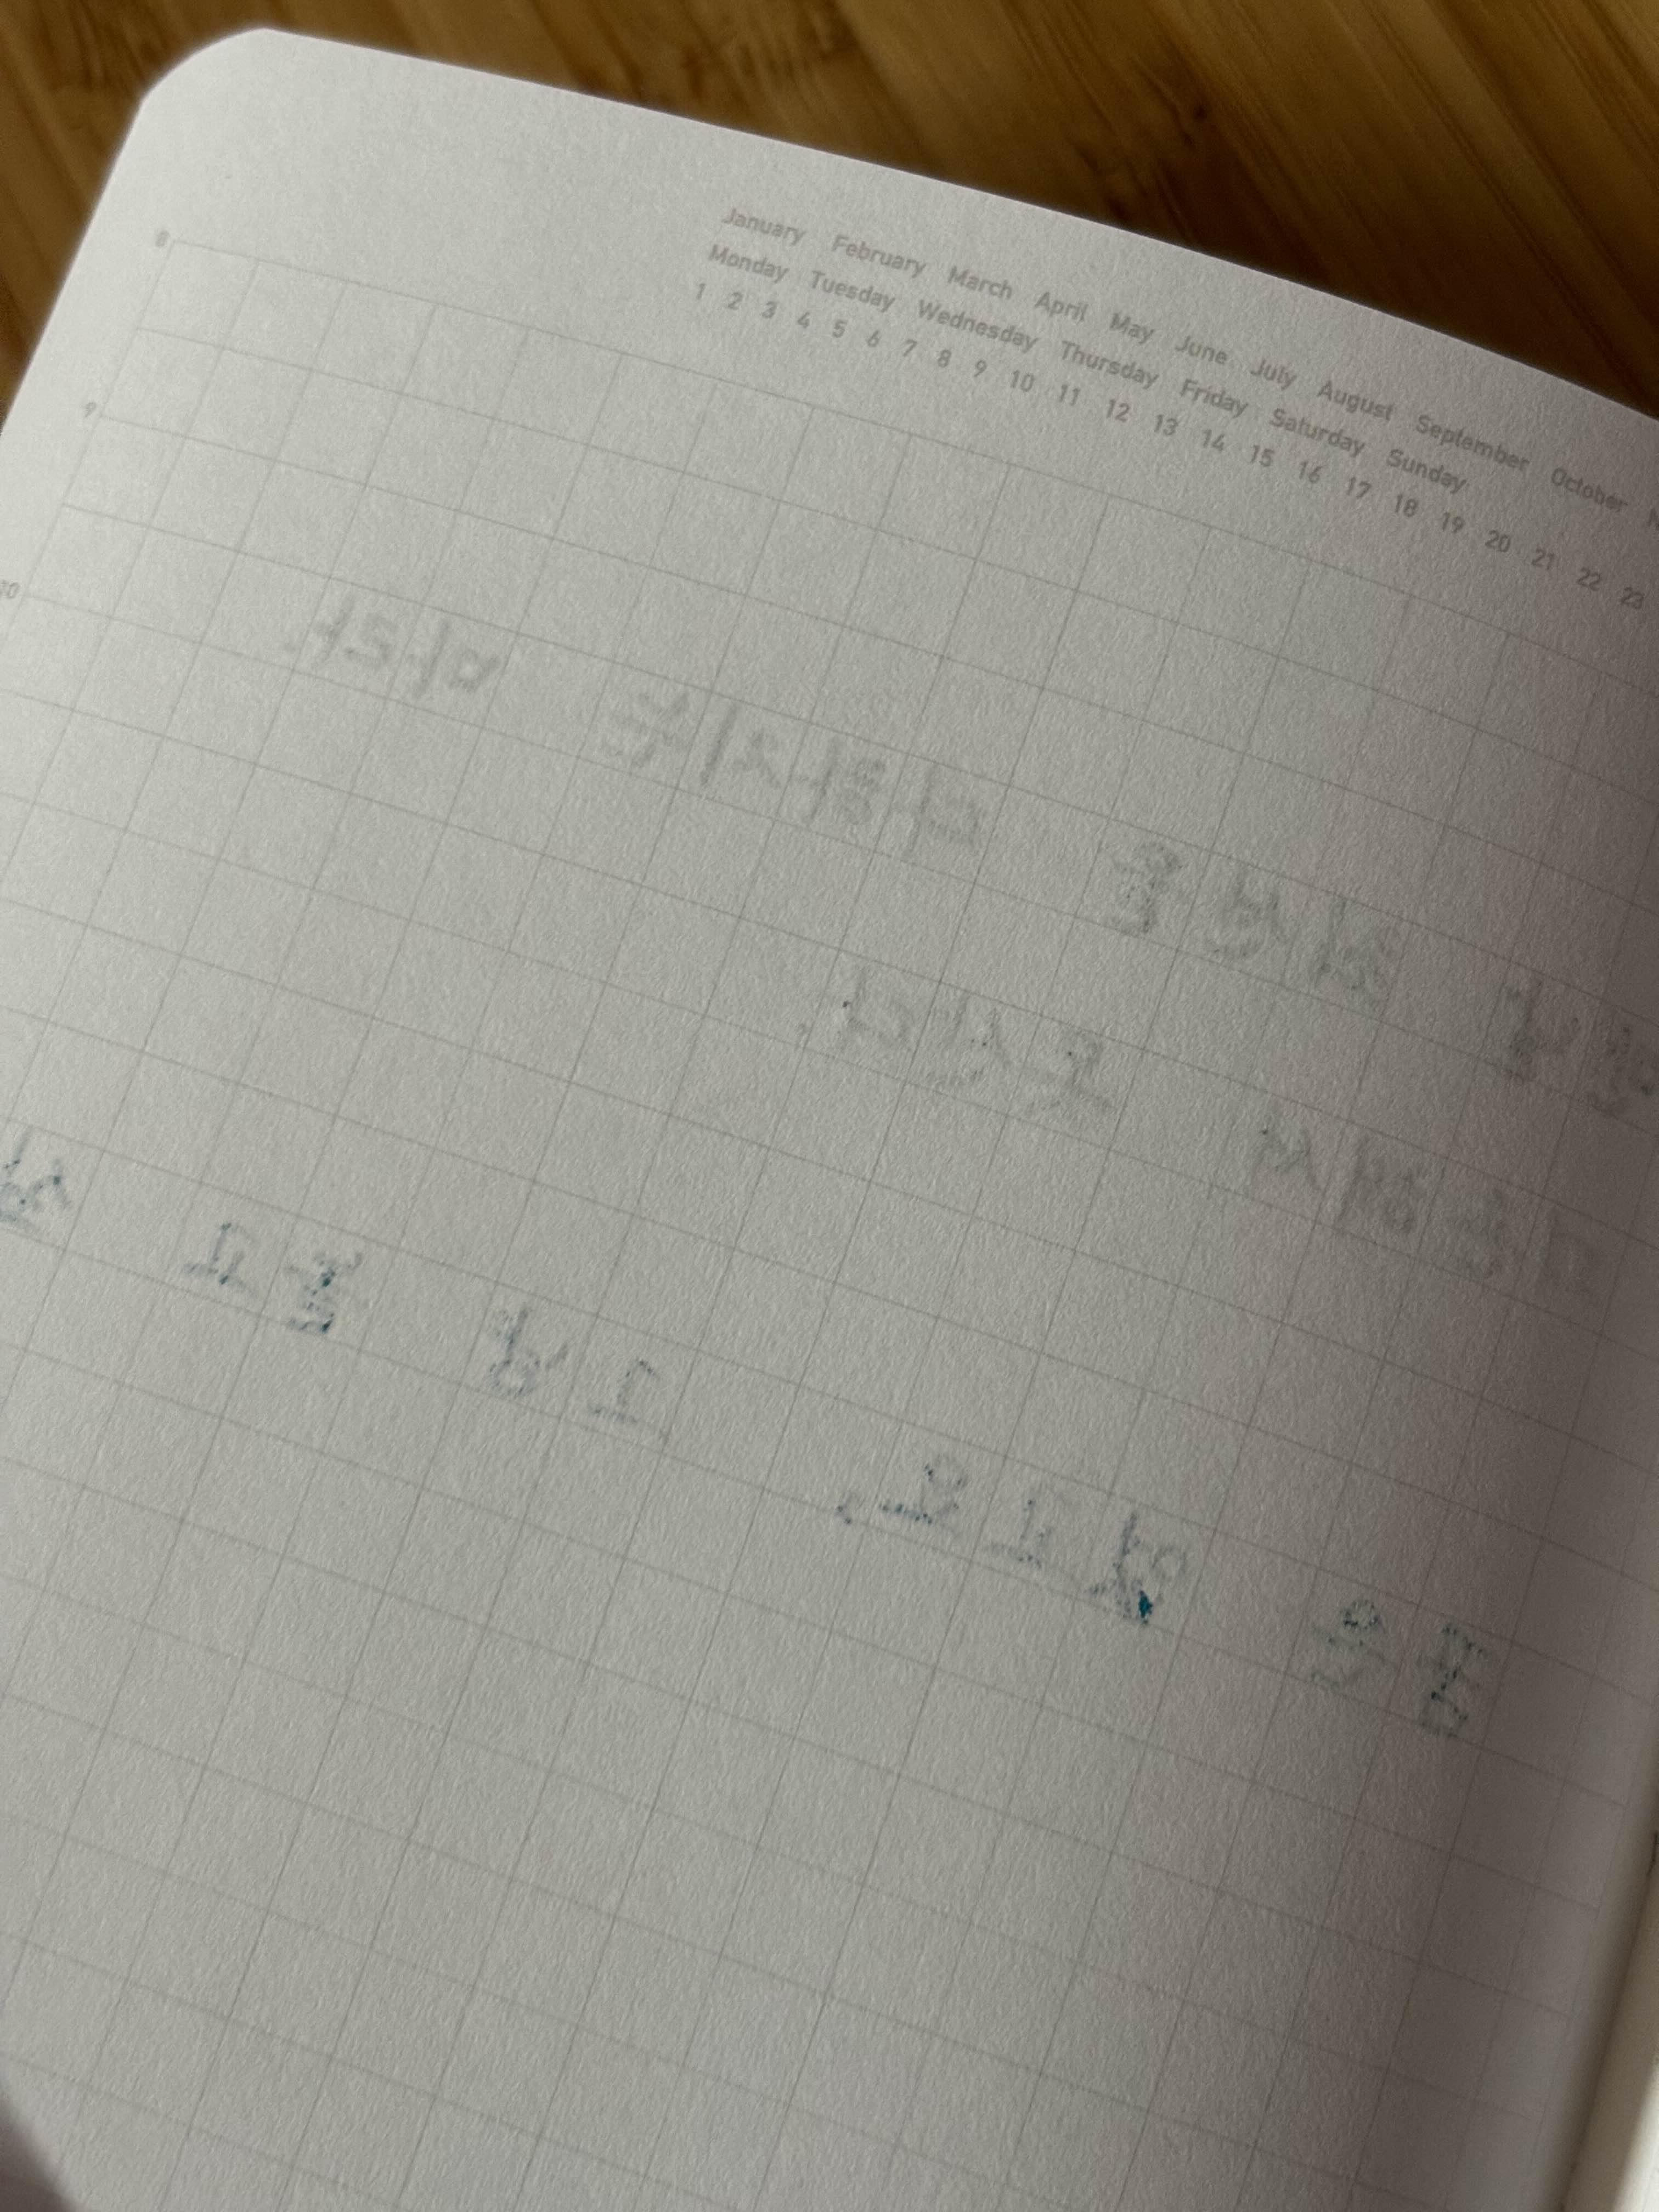 January February March April May June July August September October
Monday Tuesday Wednesday Thursday Friday Saturday Sunday
1 2 3 4 5 6 7 8 9 10 11 12 13 14 15 16 17 18 19 20 21 22 23
8
9
10
최선을 다하지는 마라.
꿈은 없고요, 그냥 놀고